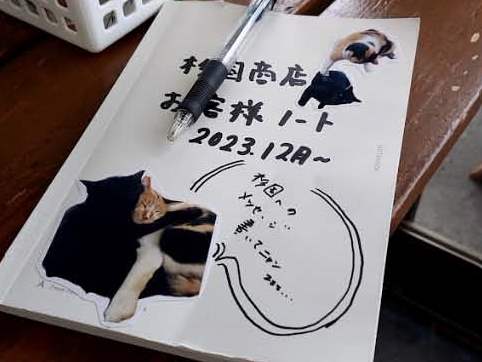 杉国商店
お客様ノート
2023.12月~
杉国への
メッセージ
書いてニャン
zzz...